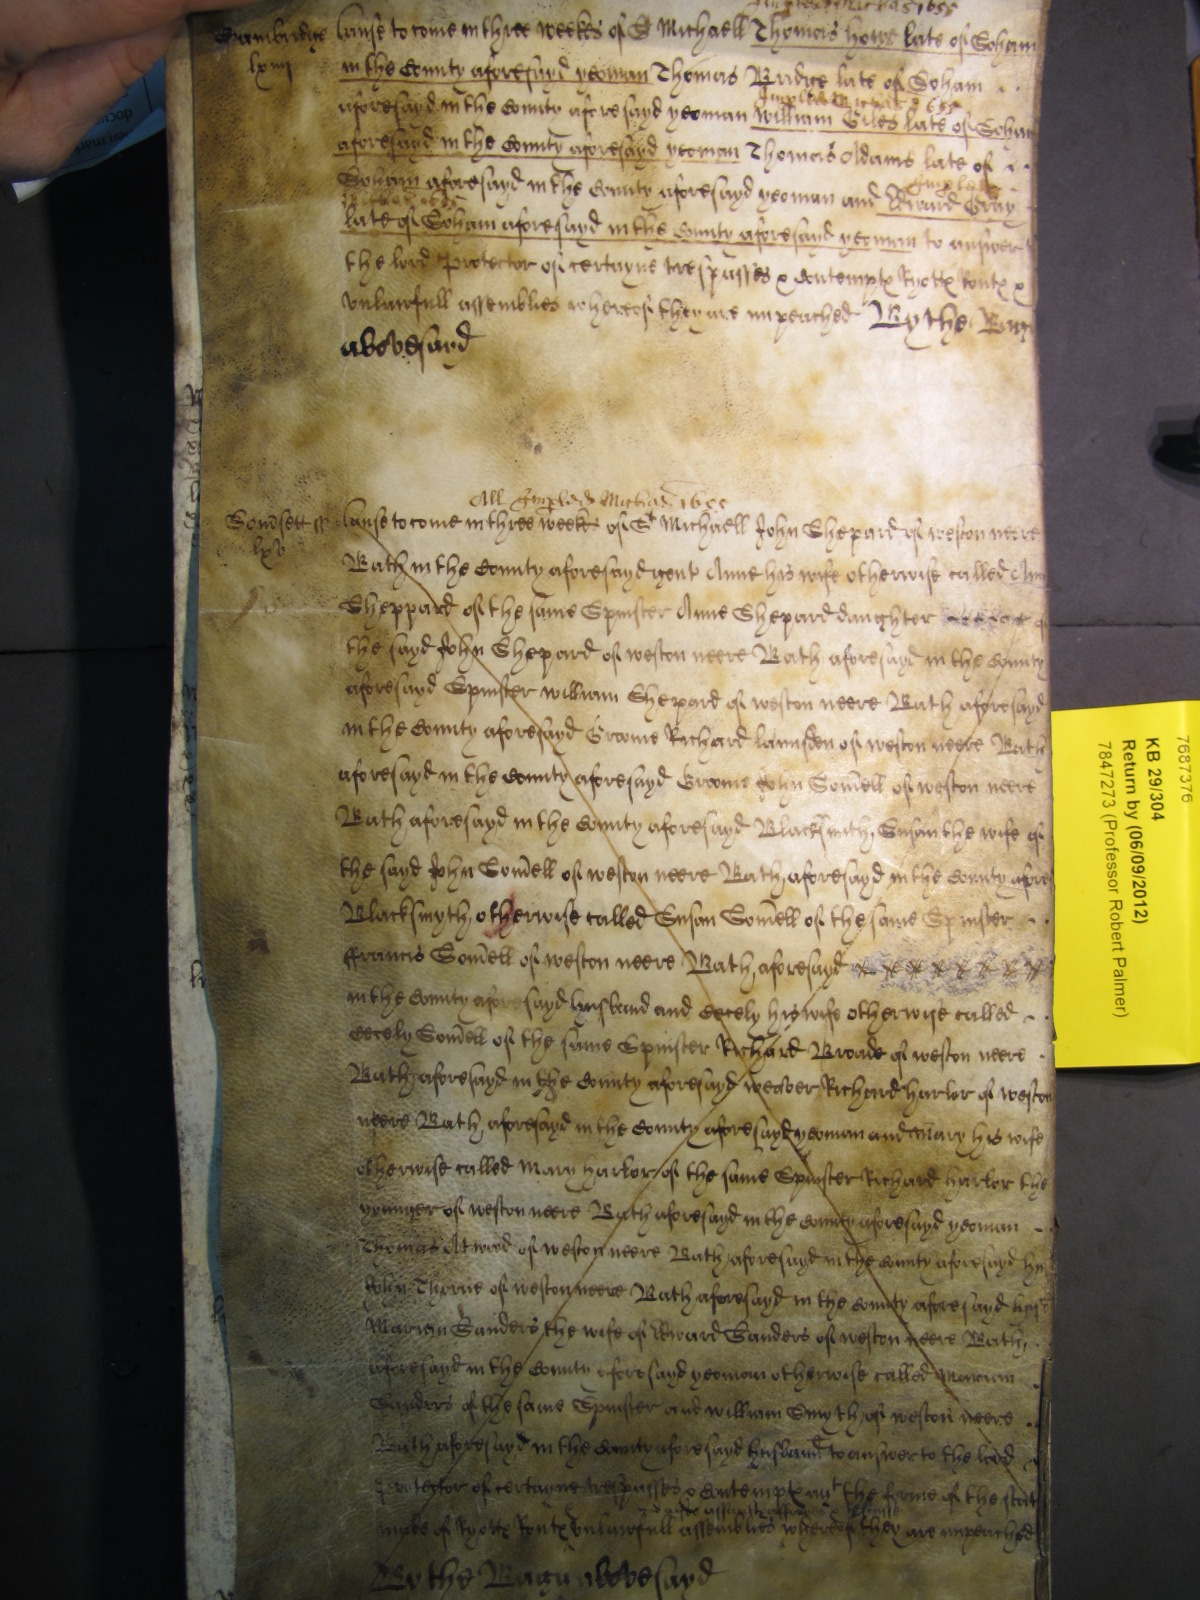 Impled Michas 1655
Cambridge Cause to come in three weekes of St Michaell Thomas howe late of Soham
lxiiij in the County aforesayd yeoman Thomas Bridge late of Soham
Impled Michas 1655
aforesayd in the County aforesayd yeoman William Giles late of Soham
aforesayd in the County aforesayd yeoman Thomas Adams late of
Impled
Soham aforesayd in the County aforesayd yeoman and Edward Gray
Michas 1655
late of Soham aforesayd in the County aforesayd yeoman to answer
the lord Protector of certayne trespasses & Contempts Ryotts Routs &
vnlawfull assemblies whereof they are impeached By the Bagu
abovesayd
All Impled Michas 1655
Somsett ss Cause to come in three weeks of St Michaell John Shepard of weston neere
lxv Bath in the County aforesayd gent Anne his wife otherwise called Ann
Sheppard of the same Spinster Anne Shepard daughter of
the sayd John Shepard of weston neere Bath aforesayd in the County
aforesayd Spinster william Shepard of weston neere Bath aforesayd
in the County aforesayd Groome Richard lansdon of weston neere Bath
aforesayd in the County aforesayd Groome John Somell of weston neere
Bath aforesayd in the County aforesayd Blacksmith Susan the wife of
the sayd John Somell of weston neere Bath aforesayd in the County afore
Blacksmyth otherwise called Susan Somell of the same Spinster
ffrancis Somell of weston neere Bath aforesayd
in the County aforesayd husband and Cecely his wife otherwise called
Cecely Somell of the same Spinster Richard Broade of weston neere
Bath aforesayd in the County aforesayd weaver Richard harlor of weston
neere Bath aforesayd in the County aforesayd yeoman and Mary his wife
otherwise called Mary harlor of the same Spinster Richard harlor the
younger of weston neere Bath aforesayd in the County aforesayd yeoman
Thomas Atwood of weston neere Bath aforesayd in the County aforesayd
John Thorne of weston neere Bath aforesayd in the County aforesayd
Marian Sanders the wife of Edward Sanders of weston neere Bath
aforesayd in the County aforesayd yeoman otherwise called Marian
Sanders of the same Spinster and william Smyth of weston neere
Bath aforesayd in the County aforesayd husband to answer to the lord
Protector of certayne trespasses & Contempts the forme of the stat
made of Ryotts Routs vnlawfull assemblies whereof they are impeached
By the Bagu abovesayd
7687376
KB 29/304
Return by (06/09/2012)
7847273 (Professor Robert Palmer)